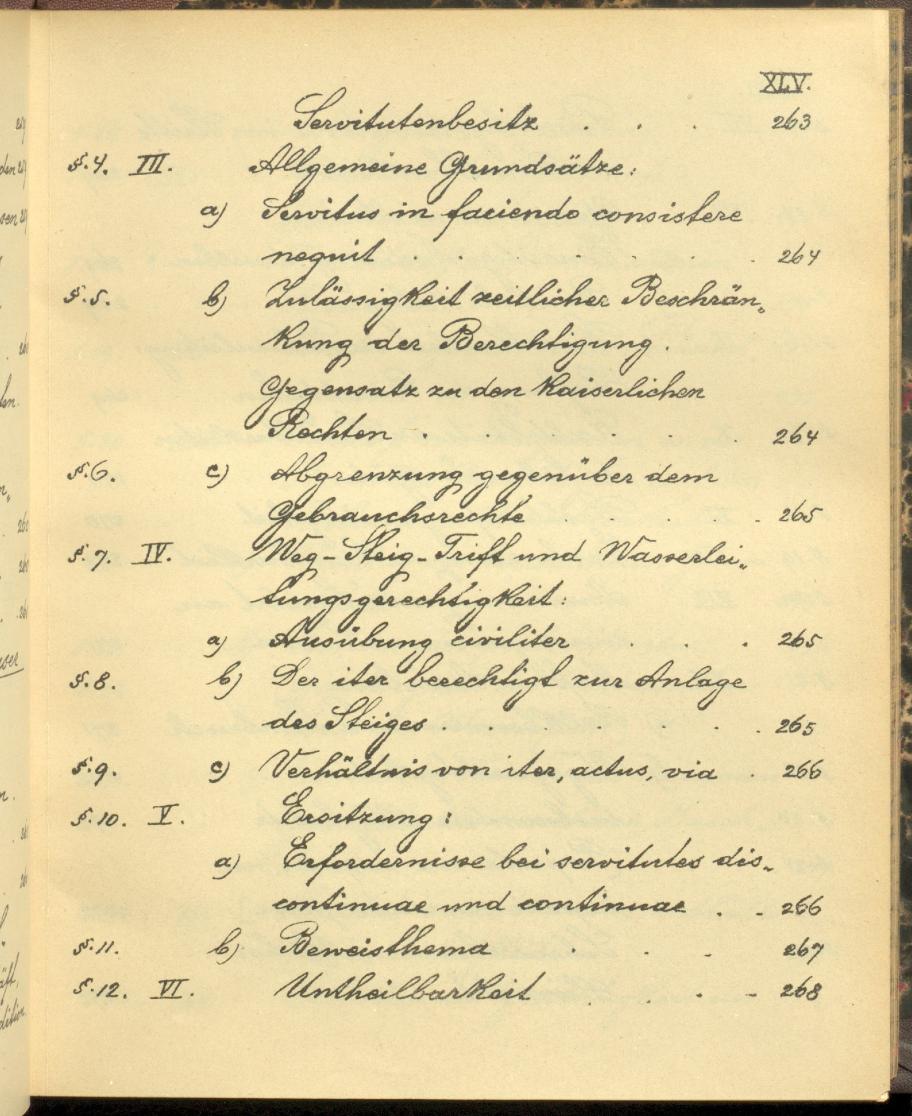 XLV.
Servitutenbesitz . . . 263
§.4. III. Allgemeine Grundsätze:
a) Servitus in faciendo consistere
nequit . . . . 264
§.5. b) Zulässigkeit zeitlicher Beschrän„
kung der Berechtigung.
Gegensatz zu den Kaiserlichen
Rechten . . . . 264
§.6. c) Abgrenzung gegenüber dem
Gebrauchsrechte . . . 265
§.7. IV. Weg-Steig-Trift und Wasserlei„
tungsgerechtigkeit:
a) Ausübung civiliter . . . 265
§.8. b) Der iter berechtigt zur Anlage
des Steiges . . . . 265
§.9. c) Verhältnis von iter, actus, via . 266
§.10. V. Ersitzung:
a) Erfordernisse bei servitutes dis„
continuae und continuae . . 266
§.11. b) Beweisthema . . . 267
§.12. VI. Untheilbarkeit . . . . 268